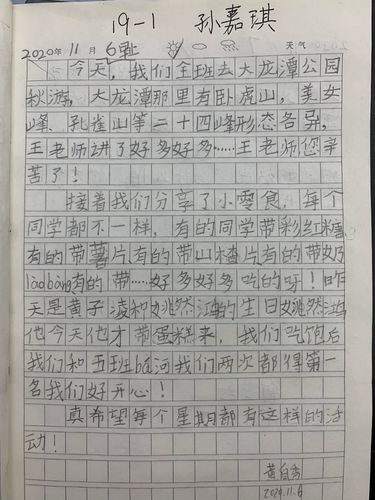 19-1 孙嘉琪
2020年11月6日 天气
今天，我们全班去大龙潭公园
秋游，大龙潭那里有卧虎山，美女
峰、孔雀山等二十四峰形态各异，
王老师讲了好多好多……王老师您辛
苦了！
接着我们分享了小零食，每个
同学都不一样，有的同学带彩红糖
有的带薯片有的带山楂片有的带奶
lào bàng有的带……好多好多吃的呀！昨
天是黄子凌和姚然鸿的生日姚然鸿
他今天他才带蛋糕来，我们吃饱后
我们和五班bá河我们两次都得第一
名我们好开心！
真希望每个星期都有这样的活
动！
2020.11.6